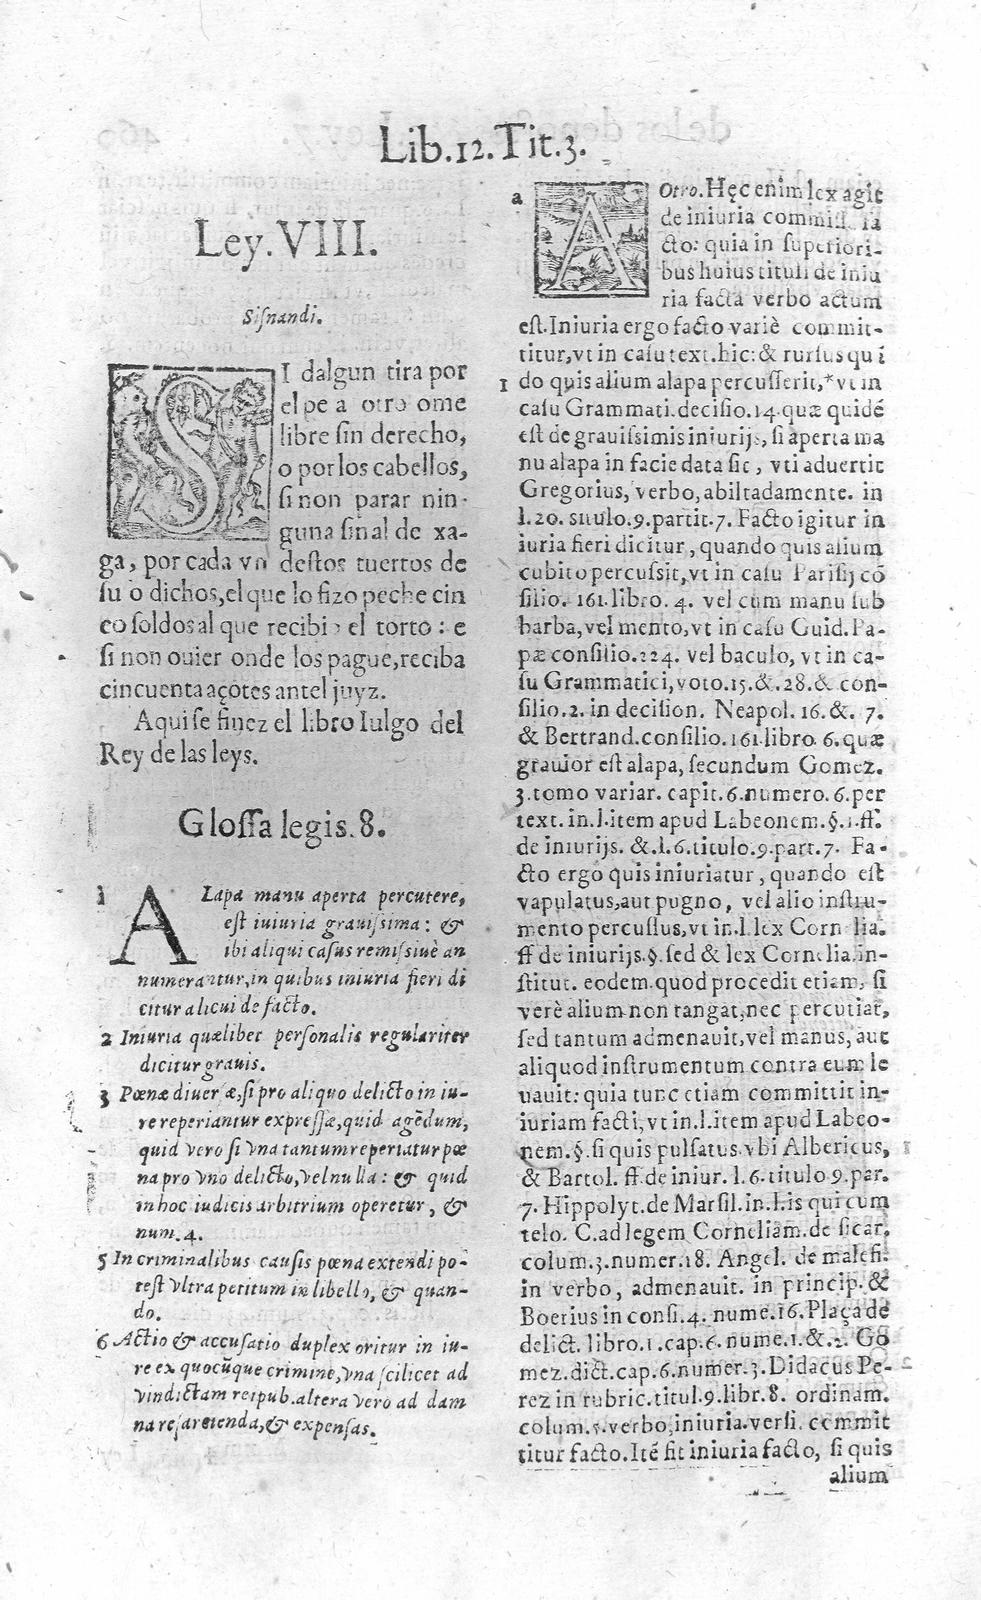 Lib.12.Tit.3.
Ley.VIII.
Siſnandi.
SI dalgun tira por
el pe a otro ome
libre ſin derecho,
o por los cabellos,
ſi non parar nin-
guna ſinal de xa-
ga, por cada vn deſtos tuertos de
ſu o dichos,el que lo fizo peche cin
co ſoldos al que recibio el torto : e
ſi non ouier onde los pague,reciba
cincuenta açotes antel juyz.
Aqui ſe finez el libro Iulgo del
Rey de las leys.
Gloſſa legis.8.
1 ALapa manu aperta percutere,
eſt iniuria grauiſsima: &
ibi aliqui caſus remiſsiuè an
numerantur,in quibus iniuria fieri di
citur alicui de facto.
2 Iniuria quælibet perſonalis regulariter
dicitur grauis.
3 Pœnæ diuerſæ,ſi pro aliquo delicto in iu-
re reperiantur expreſſæ,quid agẽdum,
quid vero ſi vna tantum reperiatur pœ
na pro vno delicto,vel nulla: & quid
in hoc iudicis arbitrium operetur, &
num.4.
5 In criminalibus cauſis pœna extendi po-
teſt vltra petitum in libello, & quan-
do.
6 Actio & accuſatio duplex oritur in iu-
re ex quocũque crimine,vna ſcilicet ad
vindictam reipub.altera vero ad dam
na reſarcienda,& expenſas.
a AOtro.Hęc enim lex agit
de iniuria commiſſ. fa
cto: quia in ſuperiori-
bus huius tituli de iniu
ria facta verbo actum
eſt.Iniuria ergo facto variè commit-
titur,vt in caſu text.hic:& rurſus quã
1 do quis alium alapa percuſſerit,*vt in
caſu Grammati.deciſio.14.quæ quidẽ
eſt de grauiſsimis iniurijs, ſi aperta ma
nu alapa in facie data ſit, vti aduertit
Gregorius, verbo,abiltadamente. in
l.20. titulo.9.partit.7. Facto igitur in
iuria fieri dicitur, quando quis alium
cubito percuſsit,vt in caſu Pariſij cõ
ſilio. 161.libro. 4. vel cum manu ſub
barba,vel mento,vt in caſu Guid.Pa-
pæ conſilio.224. vel baculo, vt in ca-
ſu Grammatici,voto.15.&.28.& con-
ſilio.2. in deciſion. Neapol. 16.&. 7.
& Bertrand.conſilio.161.libro.6.quæ
grauior eſt alapa, ſecundum Gomez.
3.tomo variar. capit.6.numero.6.per
text.in.l.item apud Labeonem.§.1.ff.
de iniurijs. &.l.6.titulo.9.part.7. Fa-
cto ergo quis iniuriatur, quando eſt
vapulatus,aut pugno, vel alio inſtru-
mento percuſſus,vt in.l.lex Cornelia.
ff de iniurijs.§.ſed & lex Cornelia,in-
ſtitut. eodem.quod procedit etiam, ſi
verè alium non tangat,nec percutiat,
ſed tantum admenauit,vel manus, aut
aliquod inſtrumentum contra eum le
uauit: quia tunc etiam committit in-
iuriam facti,vt in.l.item apud Labeo-
nem.§. ſi quis pulſatus.vbi Albericus,
& Bartol. ff.de iniur. l.6.titulo 9.par.
7. Hippolyt.de Marſil.in.l.is qui cum
telo. C.ad legem Corneliam.de ſicar.
colum.3.numer.18. Angel. de malefi.
in verbo, admenauit. in princip.&
Boerius in conſi.4. nume.16.Plaça de
delict. libro.1.cap.6.nume.1.&.2. Go
mez.dict.cap.6.numer.3.Didacus Pe-
rez in rubric.titul.9.libr.8. ordinam.
colum.5.verbo,iniuria.verſi. commit
titur facto.Itẽ fit iniuria facto, ſi quis
alium